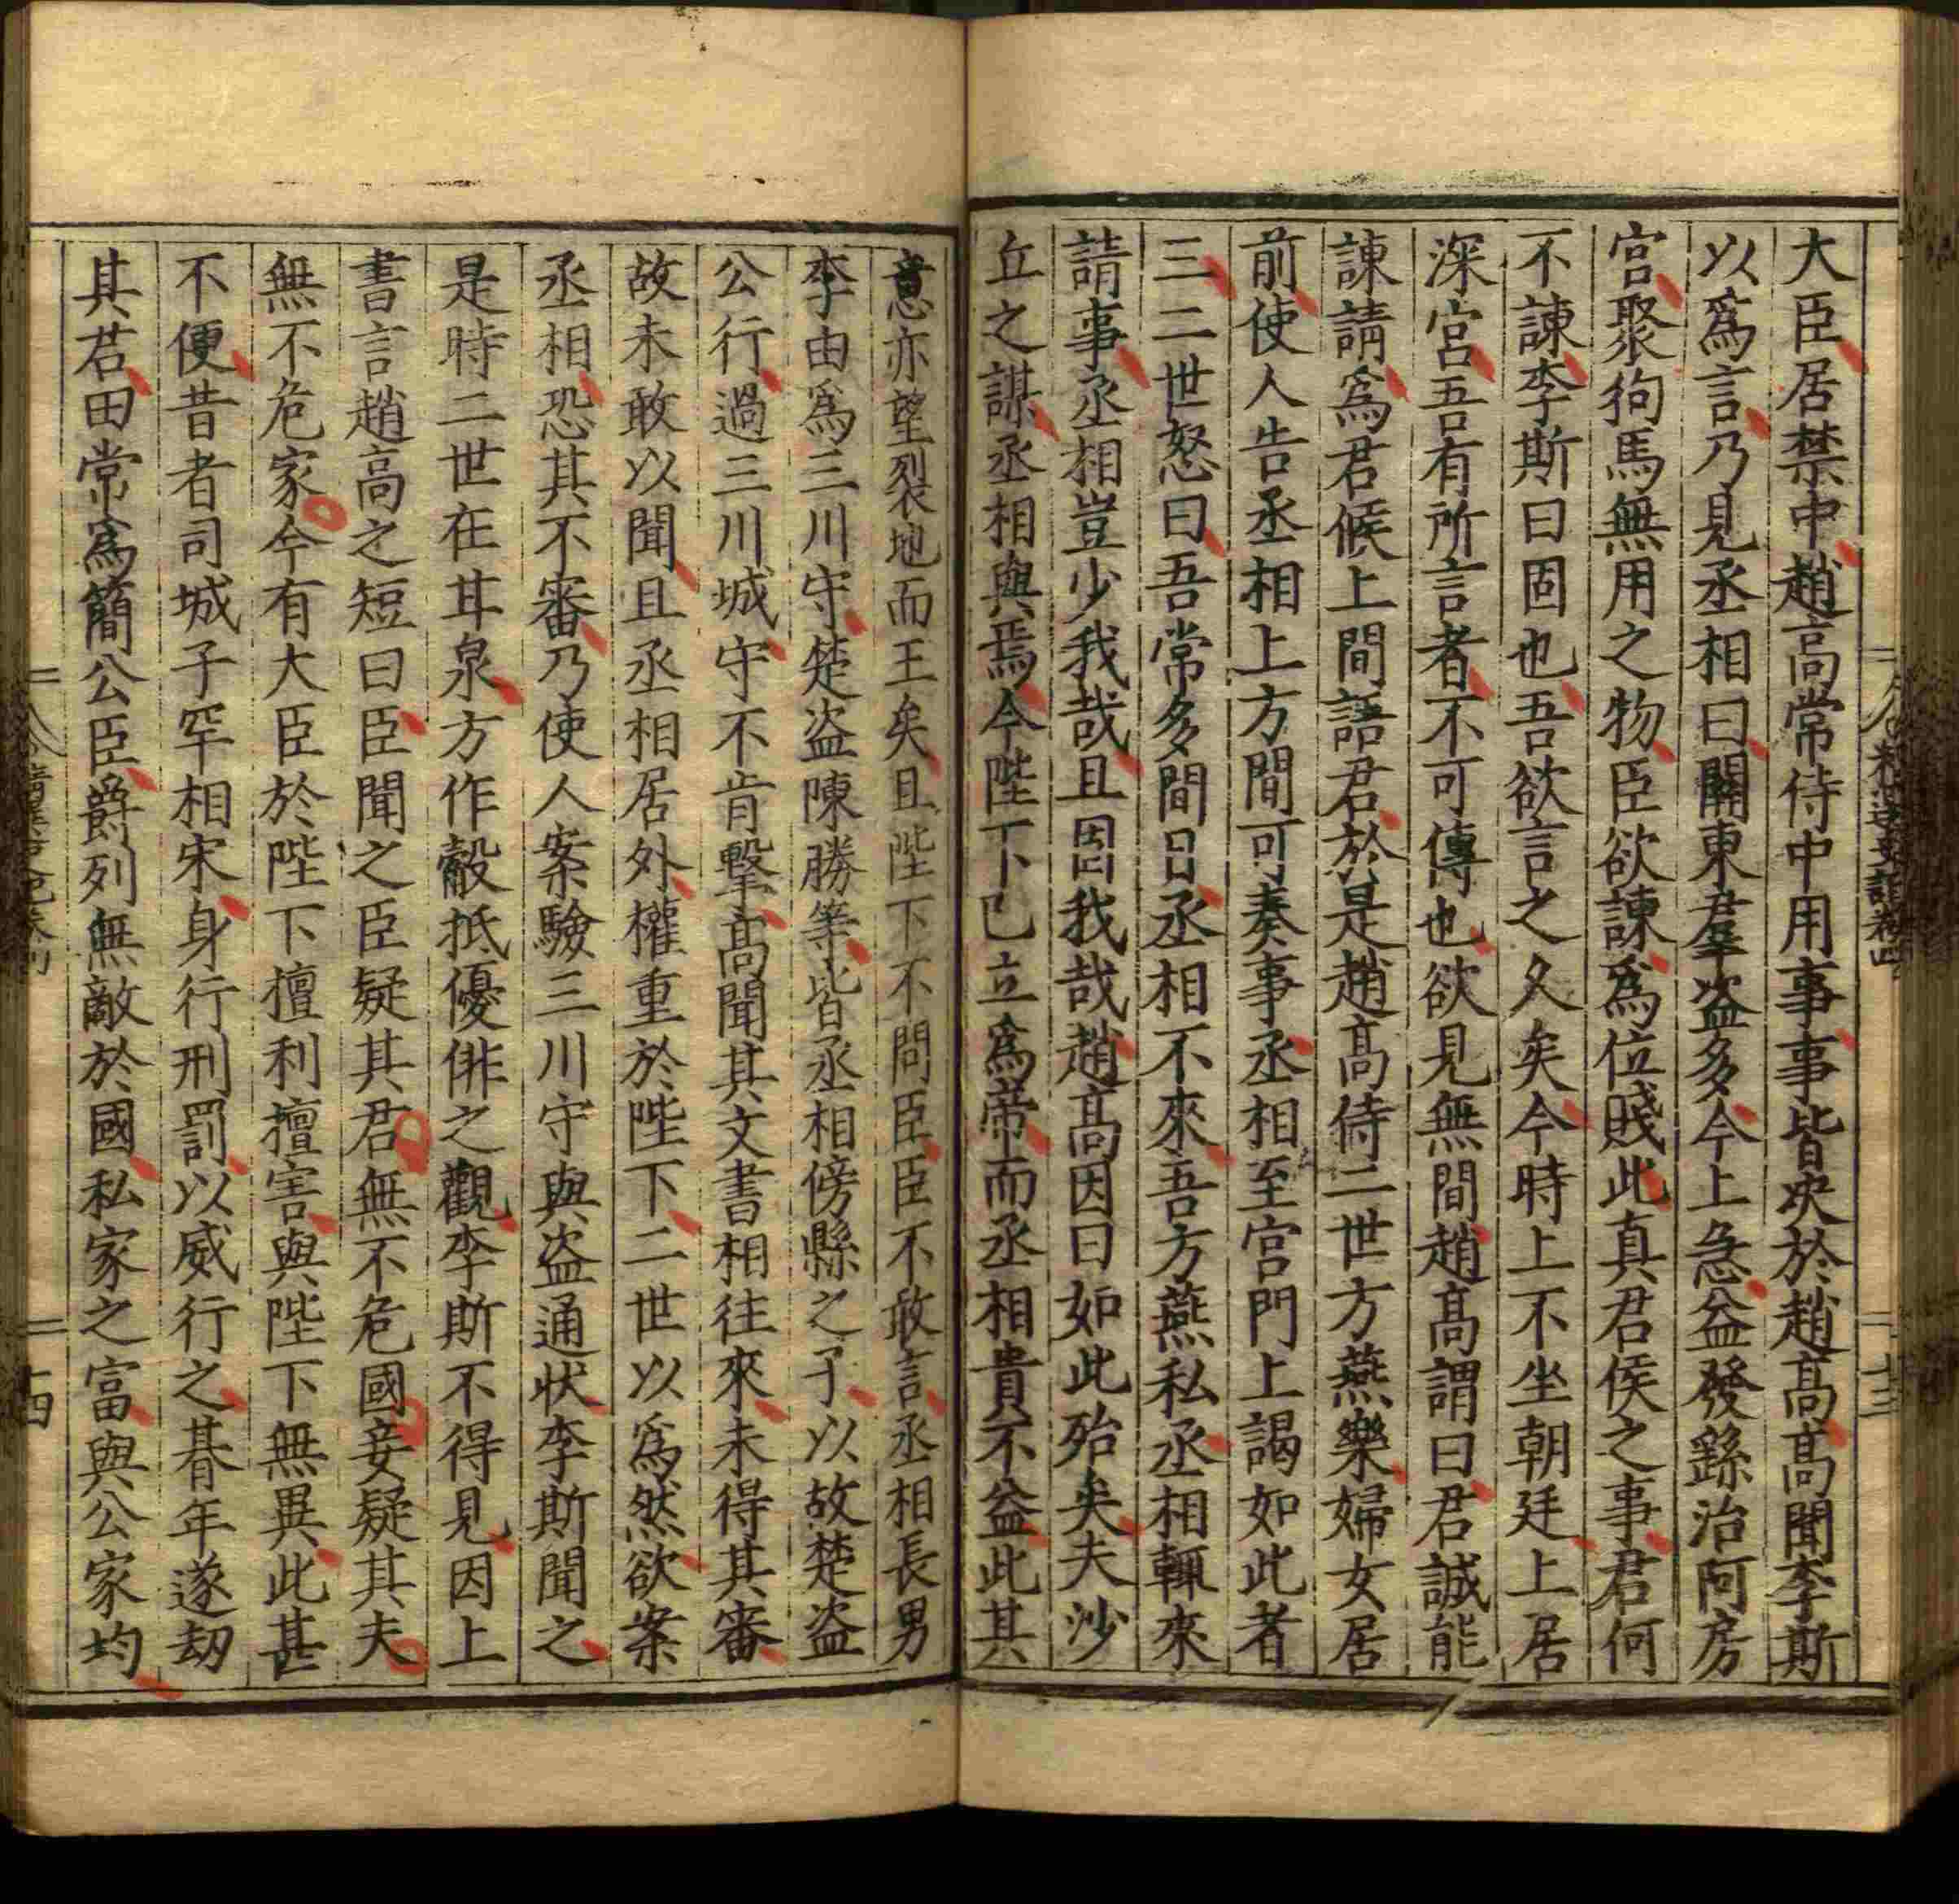 大臣居禁中趙高常侍中用事事皆决於趙高高聞李斯
以爲言乃見丞相曰關東羣盗多今上急益發繇治阿房
宫聚狗馬無用之物臣欲諫爲位賤此真君侯之事君何
不諫李斯曰固也吾欲言之久矣今時上不坐朝廷上居
深宫吾有所言者不可傳也欲見無間趙高謂曰君誠能
諫請爲君候上間語君於是趙高侍二世方燕樂婦女居
前使人告丞相上方間可奏事丞相至宫門上謁如此者
三二世怒曰吾常多間日丞相不來吾方燕私丞相輒來
請事丞相豈少我哉且固我哉趙高因曰如此殆矣夫沙
丘之謀丞相與焉今陛下已立爲帝而丞相貴不益此其
意亦望裂地而王矣且陛下不問臣臣不敢言丞相長男
李由爲三川守楚盗陳勝等皆丞相傍縣之子以故楚盗
公行過三川城守不肯擊高聞其文書相往來未得其審
故未敢以聞且丞相居外權重於陛下二世以爲然欲案
丞相恐其不審乃使人案驗三川守與盗通状李斯聞之
是時二世在甘泉方作觳抵優俳之觀李斯不得見因上
書言趙高之短曰臣聞之臣疑其君無不危國妾疑其夫
無不危家今有大臣於陛下擅利擅害與陛下無異此甚
不便昔者司城子罕相宋身行刑罰以威行之朞年遂刼
其君田常爲簡公臣爵列無敵於國私家之富與公家均
十四